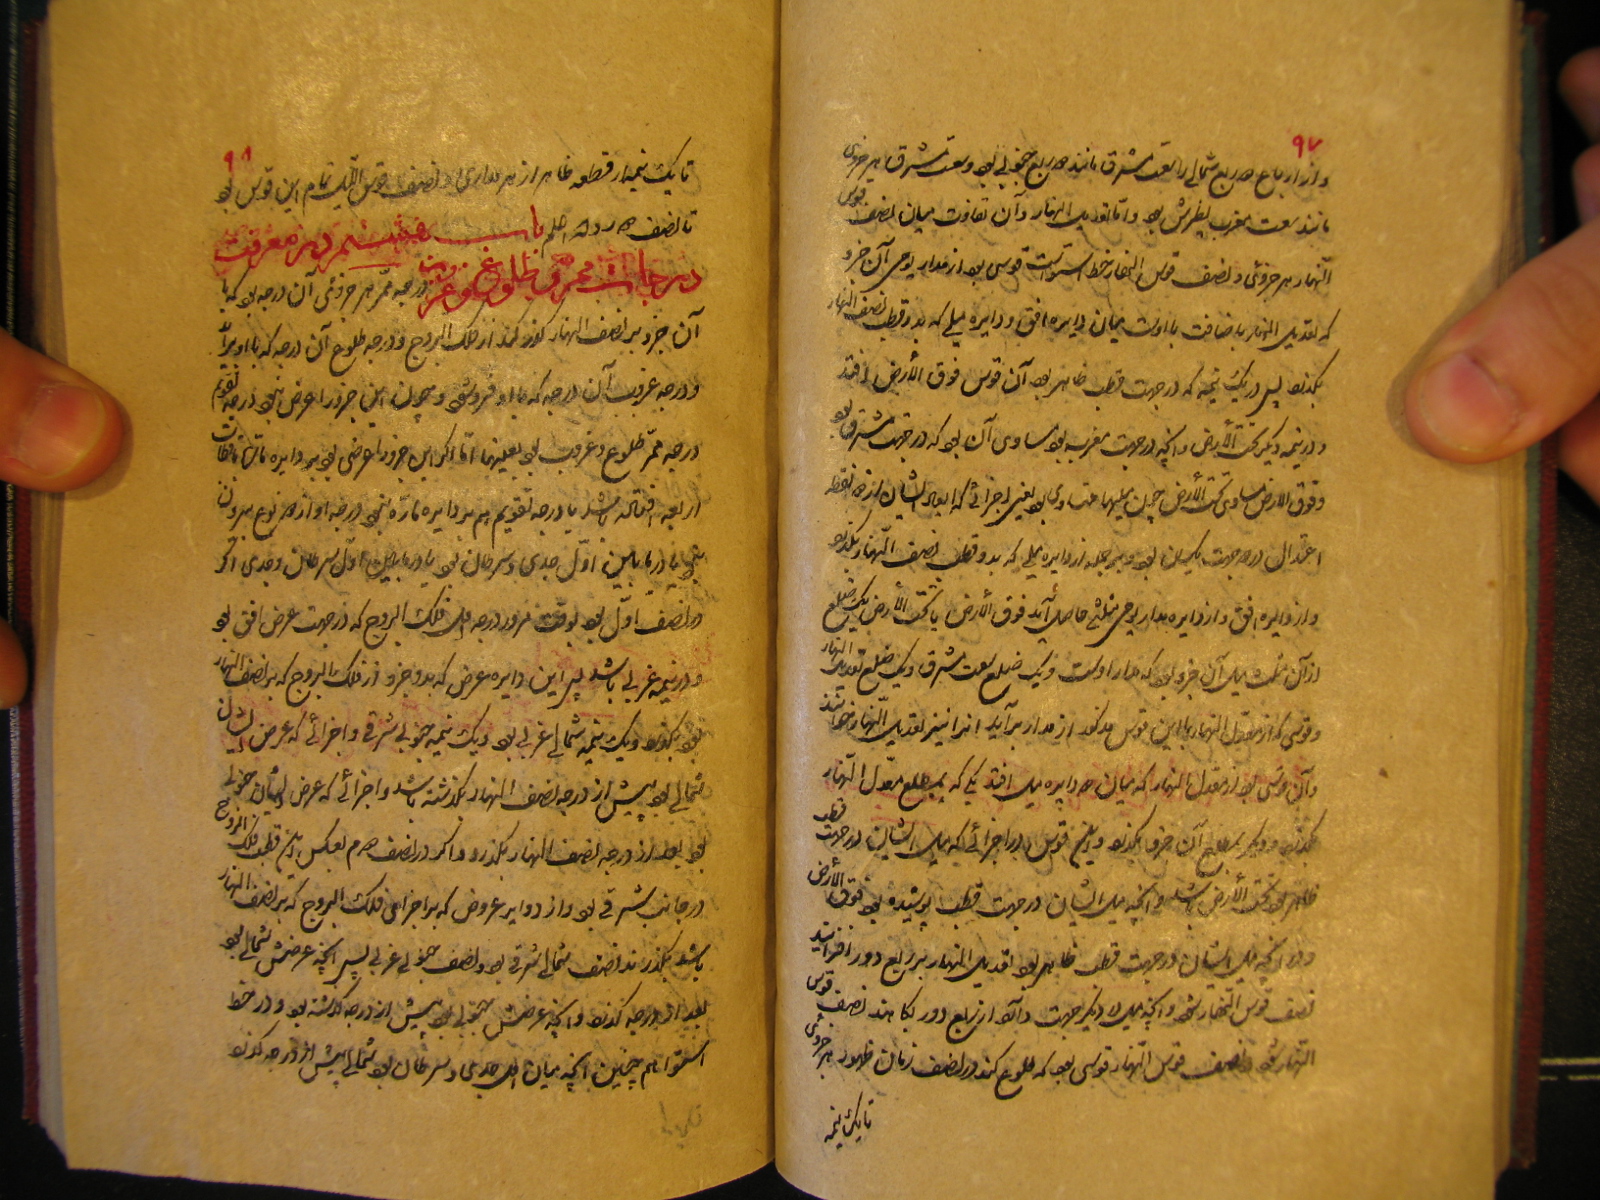 ۹۷
و از ارباع دو ربع شمالی را سعت مشرق مانند دو ربع جنوبی بود و سعت مشرق هر جزوی
مانند سعت مغرب نظیرش بود و اما تعدیل النهار و آن تفاوت میان نصف قوس
النهار هر جزوی و نصف قوس النهار خط استواست قوسی بود از مدار یومی آن جزو
که تعدیل النهار باضافت با اوست میان دایره افق و دایره میلی که بدو قطب نصف النهار
بگذرد پس در یک نیمه که در جهت قطب ظاهر بود آن قوس فوق الأرض افتد
و در نیمه دیگر تحت الأرض و آنچه در جهت مغرب بود مساوی آن بود که در جهت مشرق بود
و فوق الارض مساوی تحت الأرض چون میلها متساوی بود یعنی اجزائی که ابعاد ایشان از دو نقطه
اعتدال در دو جهت یکسان بود و بر جمله از دایره میلی که بدو قطب نصف النهار بگذرد
و از دایره افق و از دایره مدار یومی مثلثی حاصل آید فوق الأرض یا تحت الأرض یک ضلع
از آن مثلث میل آن جزو بود که مدار اوست و یک ضلع سعت مشرق و یک ضلع تعدیل النهار
و قوسی که از معدل النهار با این قوس مذکور از مدار برآید آنرا نیز تعدیل النهار خوانند
و آن قوسی بود از معدل النهار که میان دو دایره میل افتد یکی که بمطلع معدل النهار
بگذرد و دیگر بمطلع آن جزو بگذرد و این قوس در اجزائی که میل ایشان در جهت قطب
ظاهر بود تحت الأرض باشد و آنچه میل ایشان در جهت قطب پوشیده بود فوق الأرض
و در آنچه میل ایشان در جهت قطب ظاهر بود تعدیل النهار بر ربع دور افزایند
نصف قوس النهار شود و آنچه میل در دیگر جهت دارد از ربع دور بکاهند نصف قوس
النهار شود و نصف قوس النهار قوسی بود که طلوع کند در نصف زمان ظهور هر جزوی
تا یک نیمه
۹۸
تا یک نیمه از قطعه ظاهر از هر مداری و نصف قوس اللیل تمام این قوس بود
تا نصف دور و الله اعلم باب هشتم در معرفت
درجات ممر و طلوع و غروب درجه ممر هر جزوی آن درجه بود که با
آن جزو بر نصف النهار گذر کند از فلک البروج و درجه طلوع آن درجه که با او برآید
و درجه غروب آن درجه که با او فرو شود و چون این جزو را عرض نبود درجه تقویم
درجه ممر و طلوع و غروب بود بعینها اما اگر این جزو را عرضی بود بر دایره
اربعه افتاده باشد یا درجه تقویم هم بر دایره ماره نبود درجه او از دو نوع بیرون
نبود یا در مابین اول جدی و سرطان بود یا در مابین اول سرطان و جدی اگر
در نصف اول بود بوقت مرور درجه فلک البروج که در جهت عرض افق بود
و در نیمه غربی باشد پس این دایره عرض که بدو جزو از فلک البروج که بر نصف النهار
بود بگذرد و یک نیمه شمالی غربی بود و یک نیمه جنوبی شرقی و اجزائی که عرض ایشان
شمالی بود پیش از درجه نصف النهار گذشته باشد و اجزائی که عرض ایشان جنوبی
بود بعد از درجه نصف النهار بگذرد و اگر در نصف دوم بود بعکس این قطب فلک البروج
در جانب شرقی بود و از دوایر عروض که بر اجزای فلک البروج که بر نصف النهار
باشد بگذرند نصف شمالی شرقی بود و نصف جنوبی غربی پس آنچه عرضش شمالی بود
بعد از درجه گذرد و آنچه عرضش جنوبی بود پیش از درجه گذشته بود و در خط
استوا هم چنین آنچه میان اول جدی و سرطان بود شمالی پیش از درجه گذرد